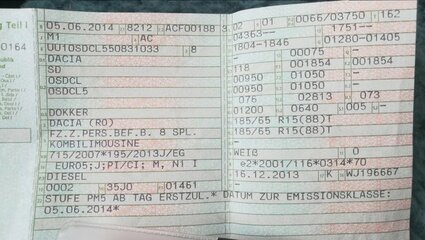 g Teil I
00164
05.06.2014 8212 ACF00188 3
M1 AC
UU10SDCL550831033 8
DACIA
SD
OSDCL
OSDCL5
DOKKER
DACIA (RO)
FZ.Z.PERS.BEF.B. 8 SPL.
KOMBILIMOUSINE
715/2007*195/2013J/EG
EURO5;J;PI/CI; M, N1 I
DIESEL
0002 35J0 01461
STUFE PM5 AB TAG ERSTZUL.* DATUM ZUR EMISSIONSKLASSE:
05.06.2014*
02 01 0066/03750 162
04363-- 1751--
1804-1846 01280-01405
00075 —
118 01854 001854
00950 01050 —
00950 01050 —
076 02813 073
01200 0640 005 —
185/65 R15(88)T
185/65 R15(88)T
—
WEIß 0
e2*2001/116*0314*70
16.12.2013 K WJ196667